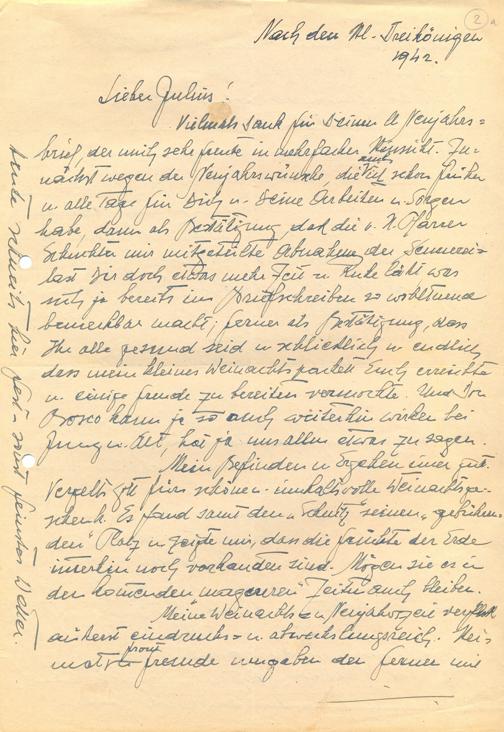 2a
Nach den Hl. Dreikönigen
1942.
Lieber Julius!
Vielmals Dank für Deinen lb Neujahrs=
brief, der mich sehr freute in mehrfacher Hinsicht. Zu=
nächst wegen der Neujahrswünsche, die ich auch schon früher
u. alle Tage für Dich u. Deine Arbeiten u. Sorgen
habe, dann als Bestätigung, dass die v. H. Pfarrer
mir mitgeteilte Abnahme der
last Dir doch etwas mehr Zeit u. Ruhe läßt was
sich ja bereits im Briefschreiben so wohltuend
bemerkbar macht; ferner als Bestätigung, dass
Ihr alle gesund seid u. schliesslich u. endlich
dass mein kleines Weinachtspaket Euch erreichte
u. einige Freude zu bereiten vermochte. Und Don
Bosco kann ja so auch weiterhin wirken bei
Jung u. Alt, hat ja uns allen etwas zu sagen.
Mein Befinden u. Ergehen immer gut.
Vergelts Gott fürs schöne u. inhaltsvolle Weinachtsge=
schenk. Es fand samt den seinen „gebühren=
den" Platz u. zeigte mir, dass die Früchte der Erde
immerhin noch vorhanden sind. Mögen sie es in
der kommenden „mageren" Zeit auch bleiben.
Meine Weinachts= u. Neujahrszeit verlief
äußerst eindrucks= u. abwechslungsreich. Hei=
mat= front freude umgaben den ferner mit
Heute schneits hier fest - sonst feinstes Wetter.